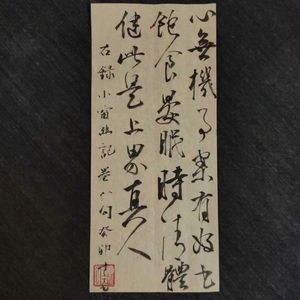 心無機事案有好書
飽食晏眠時清體
健此是上界真人
右錄小窗幽記卷八句癸卯